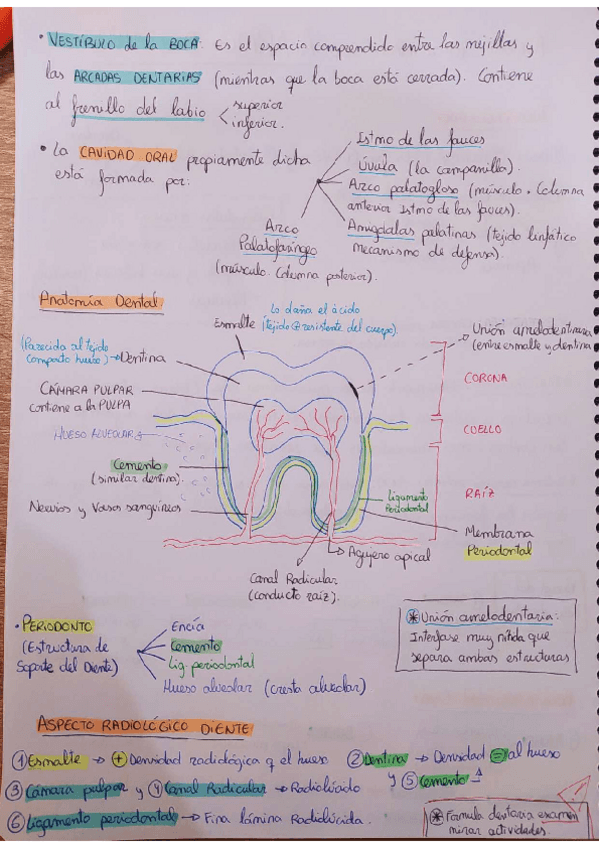 • VESTÍBULO de la BOCA: Es el espacio comprendido entre las mejillas y
las ARCADAS DENTARIAS (mientras que la boca está cerrada). Contiene
al frenillo del labio < superior
inferior.
• La CAVIDAD ORAL propiamente dicha
está formada por:
Istmo de las fauces
Úvula (la campanilla).
Arco palatogloso (músculo. Columna
anterior Istmo de las fauces).
Amígdalas palatinas (tejido linfático
mecanismo de defensa).
Arco
Palatofaríngeo
(músculo. Columna posterior).
Anatomía Dental
Lo daña el ácido
(tejido ⊕ resistente del cuerpo).
Esmalte
Unión amelodentinaria
(entre esmalte y dentina
(Parecida al tejido
compacto hueso) → Dentina
CÁMARA PULPAR
contiene a la PULPA
HUESO ALVEOLAR
Cemento
(similar dentina).
Nervios y Vasos sanguíneos
CORONA
CUELLO
RAÍZ
Ligamento
Periodontal
Membrana
Periodontal
Agujero apical
Canal Radicular
(conducto raíz).
• PERIODONTO
(Estructura de
Soporte del Diente)
Encía
Cemento
Lig. periodontal
Hueso alveolar (cresta alveolar)
⊛ Unión amelodentaria:
Interfase muy nítida que
separa ambas estructuras
ASPECTO RADIOLÓGICO DIENTE
① Esmalte → ⊕ Densidad radiológica q el hueso ② Dentina → Densidad = al hueso
y ⑤ Cemento
③ Cámara pulpar y ④ Canal Radicular → Radiolúcido
⑥ Ligamento periodontal → Fina lámina Radiolúcida.
⊛ Fórmula dentaria examen
mirar actividades.